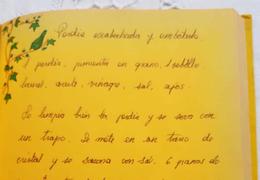 Perdiz escabechada y embotada
1 perdiz, pimienta en grano, 1 cebolla
laurel, aceite, vinagre, sal, ajos.
Se limpia bien la perdiz y se seca con
un trapo. Se mete en un tarro de
cristal y se sazona con sal, 6 granos de